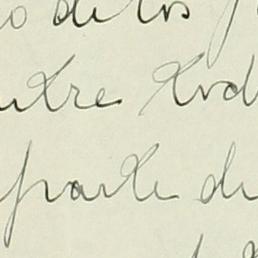 o de los
entre tod
parte de